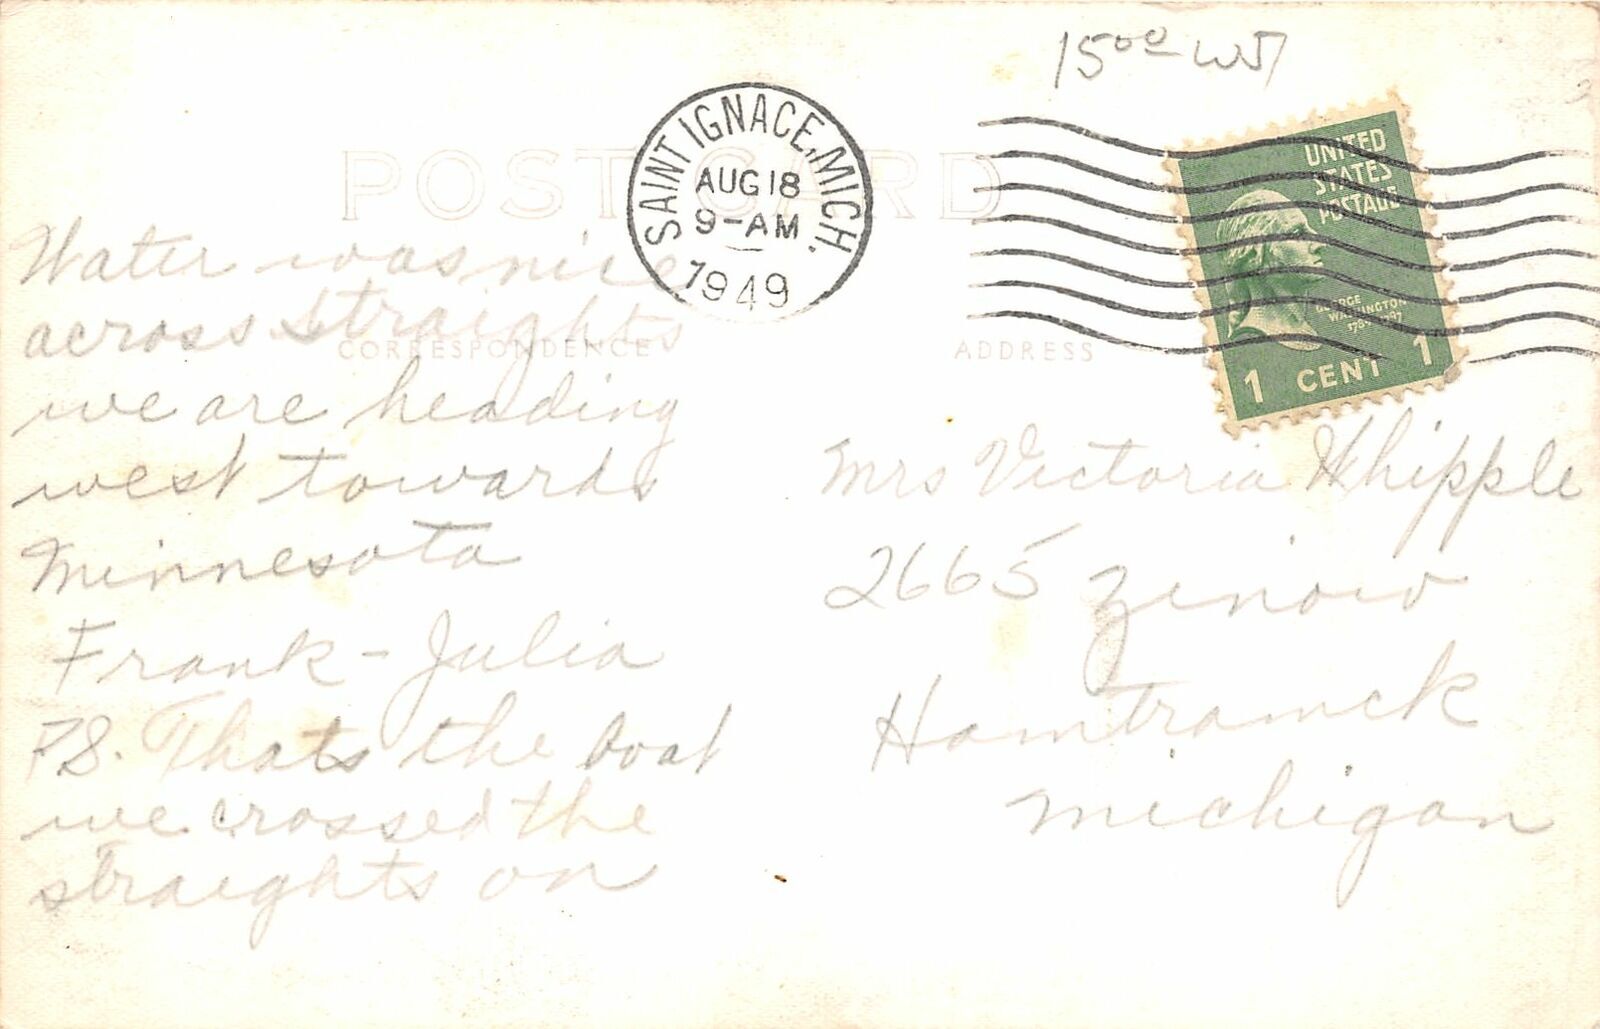 15⁰⁰ WJ
POST CARD
SAINT IGNACE, MICH.
AUG 18
9-AM
1949
UNITED
STATES
POSTAGE
GEORGE
WASHINGTON
1 CENT 1
CORRESPONDENCE
ADDRESS
Water was nice
across straights
we are heading
west towards
Minnesota
Frank - Julia
P.S. Thats the boat
we crossed the
straights on
Mrs Victoria Whipple
2665 Zinow
Hamtramck
Michigan